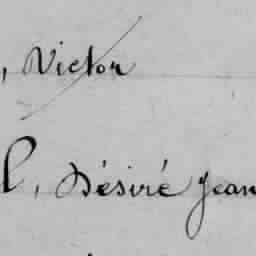 , Victor
l, Désiré Jean